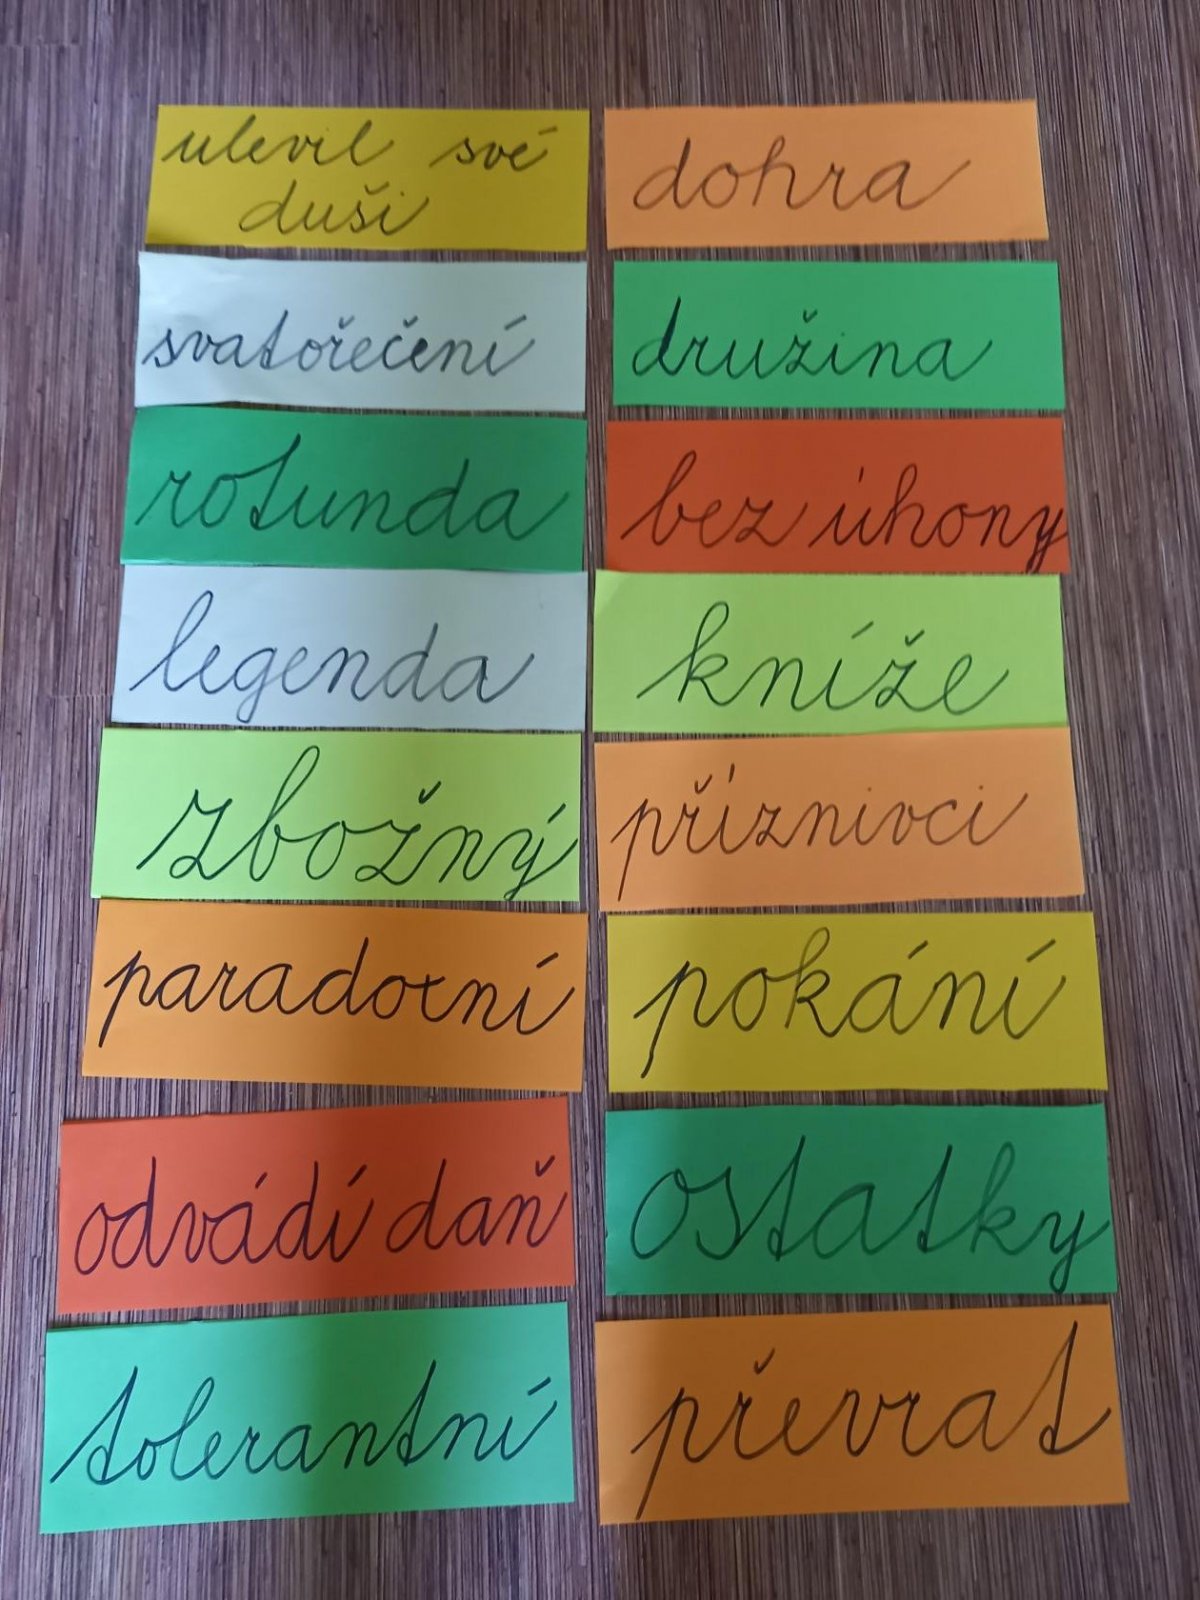 ulevil své
duši
dohra
svatořečení
družina
rotunda
bez úhony
legenda
kníže
zbožný
příznivci
paradoxní
pokání
odvádí daň
ostatky
tolerantní
převrat